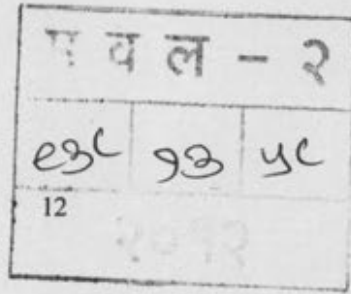 प व ल - २
९३८ १३ ५८
12
२०१२